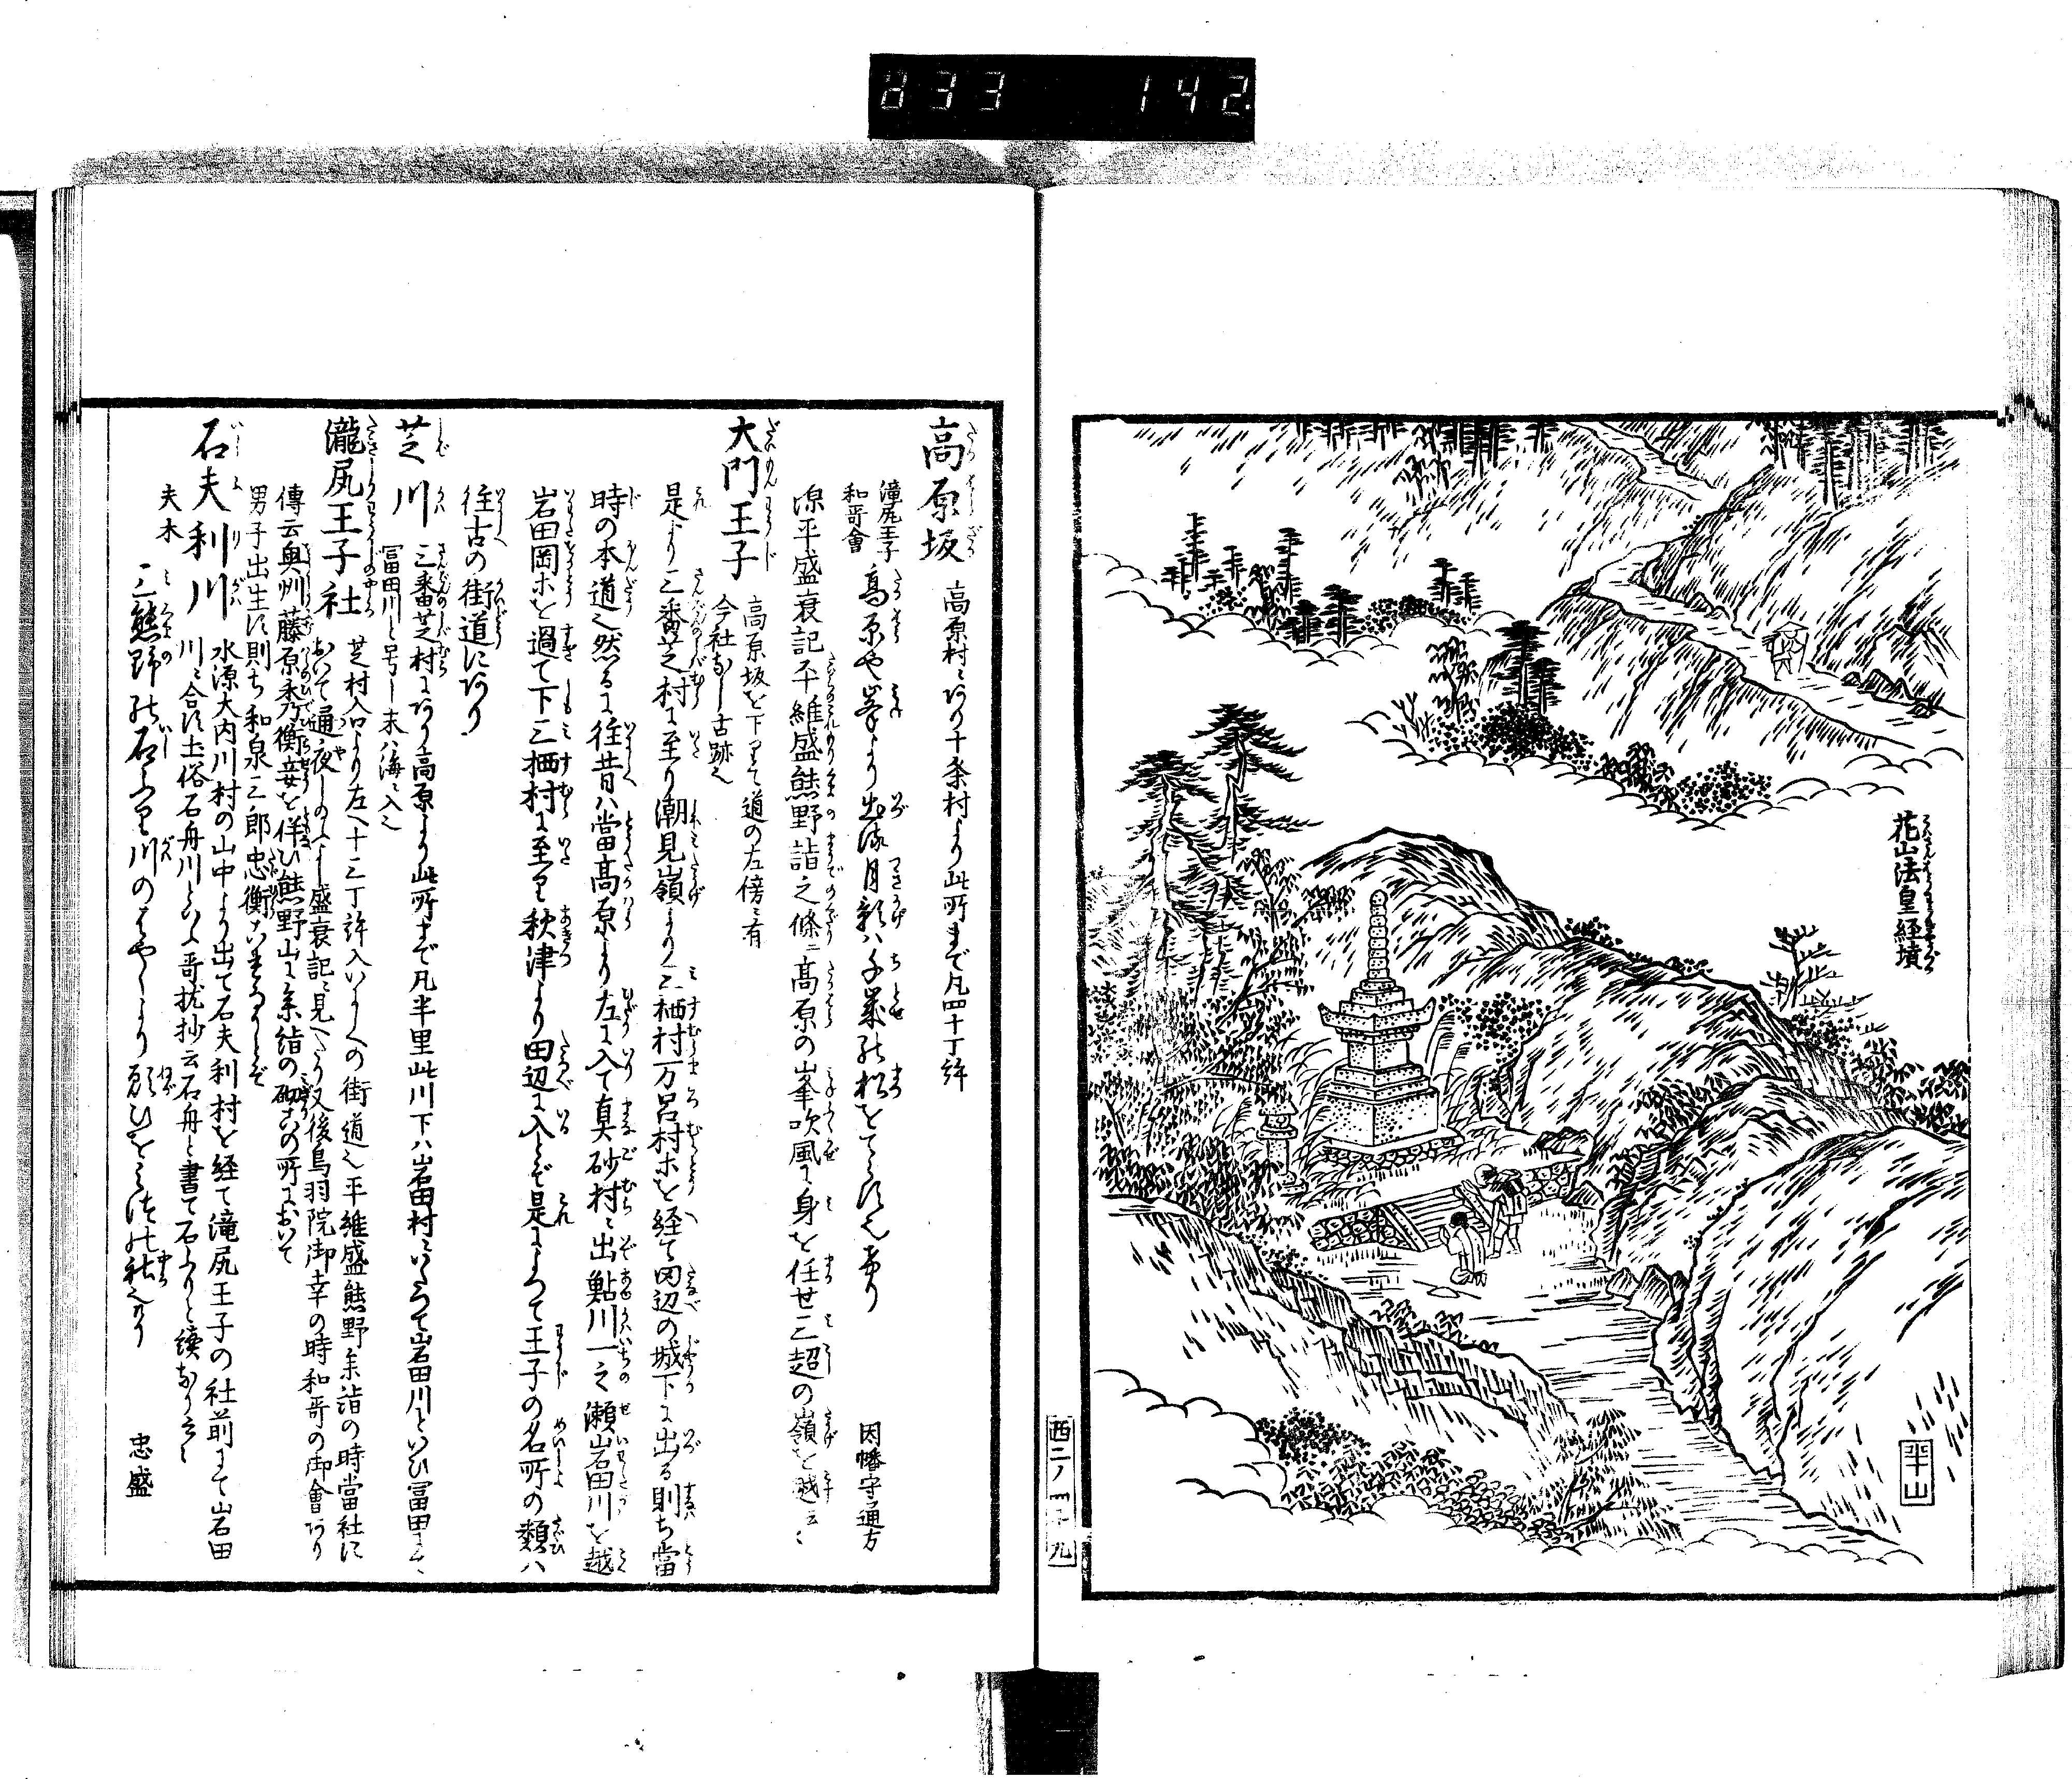 833 142
花山法皇経墳
半山
西二ノ四十九
高原坂 高原村ニあり十条村より此所まで凡四十丁許
滝尻王子
和哥會
高原や峯より出る月影ハ千歳の松をてらす也けり 因幡守通方
源平盛衰記平維盛熊野詣之條ニ高原の峯吹風に身を任せ三超の嶺を越云々
大門王子 高原坂を下りて道の左傍ニ有
今社なし古跡也
是より三番芝村に至り潮見嶺より三栖村万呂村ホを経て田辺の城下に出る則ち當
時の本道也然るに往昔ハ當高原より左に入て真砂村ニ出鮎川一之瀬岩田川を越
岩田岡ホを過て下三栖村に至り秋津より田辺に入とぞ是によつて王子の名所の類ハ
往古の街道にあり
芝川 三番芝村にあり高原より此所まで凡半里此川下ハ岩田村にいたつて岩田川といひ冨田にて
冨田川と号し末ハ海ニ入る
瀧尻王子社 芝村入口より左へ十三丁許入いにしへの街道也平維盛熊野参詣の時當社に
おいて通夜しのよし盛衰記ニ見へたり又後鳥羽院御幸の時和哥の御會あり
傳云奥州藤原秀衡妾を伴ひ熊野山に参詣の砌この所において
男子出生す則ち和泉三郎忠衡
石夫利川 水源大内川村の山中より出て石夫利村を経て滝尻王子の社前にて岩田
川ニ合す土俗石舟川といふ哥枕抄云石舟と書て石ふりと續
夫木
三熊野の石ふり川のはやくより願ひをみつの社也けり 忠盛